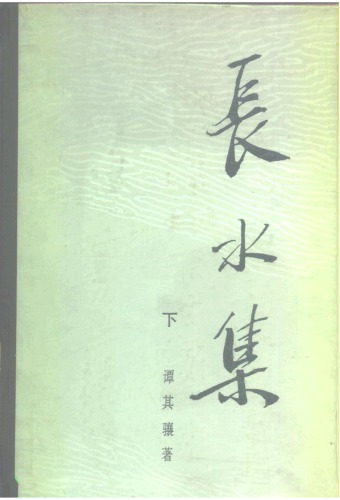 長水集
下
谭其骧著